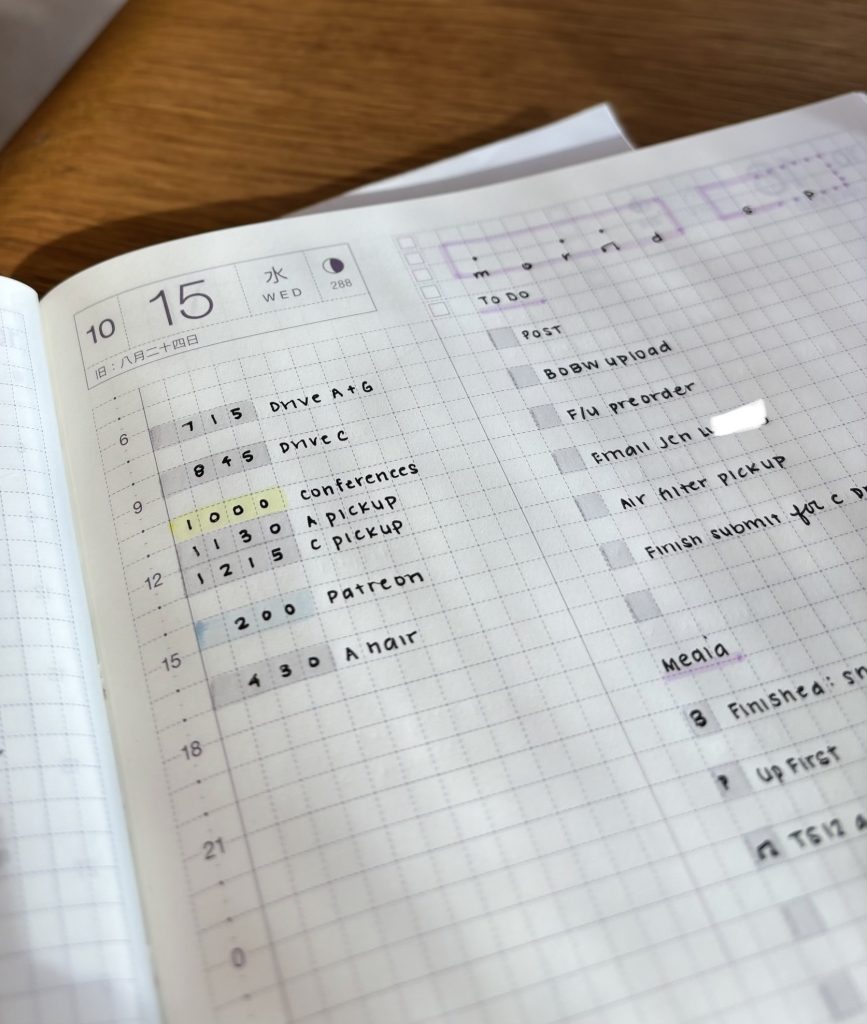 10 15 水 WED 288
旧:八月二十四日
6
715 Drive A + G
845 Drive C
9
1000 Conferences
1130 A pickup
12
1215 C pickup
200 Patreon
15
430 A hair
18
21
0
m o n d
s p
TO DO
POST
BOBW upload
F/u preorder
Email Jen
Air filter pickup
Finish submit for C
Media
Finished:
Up First
TS12